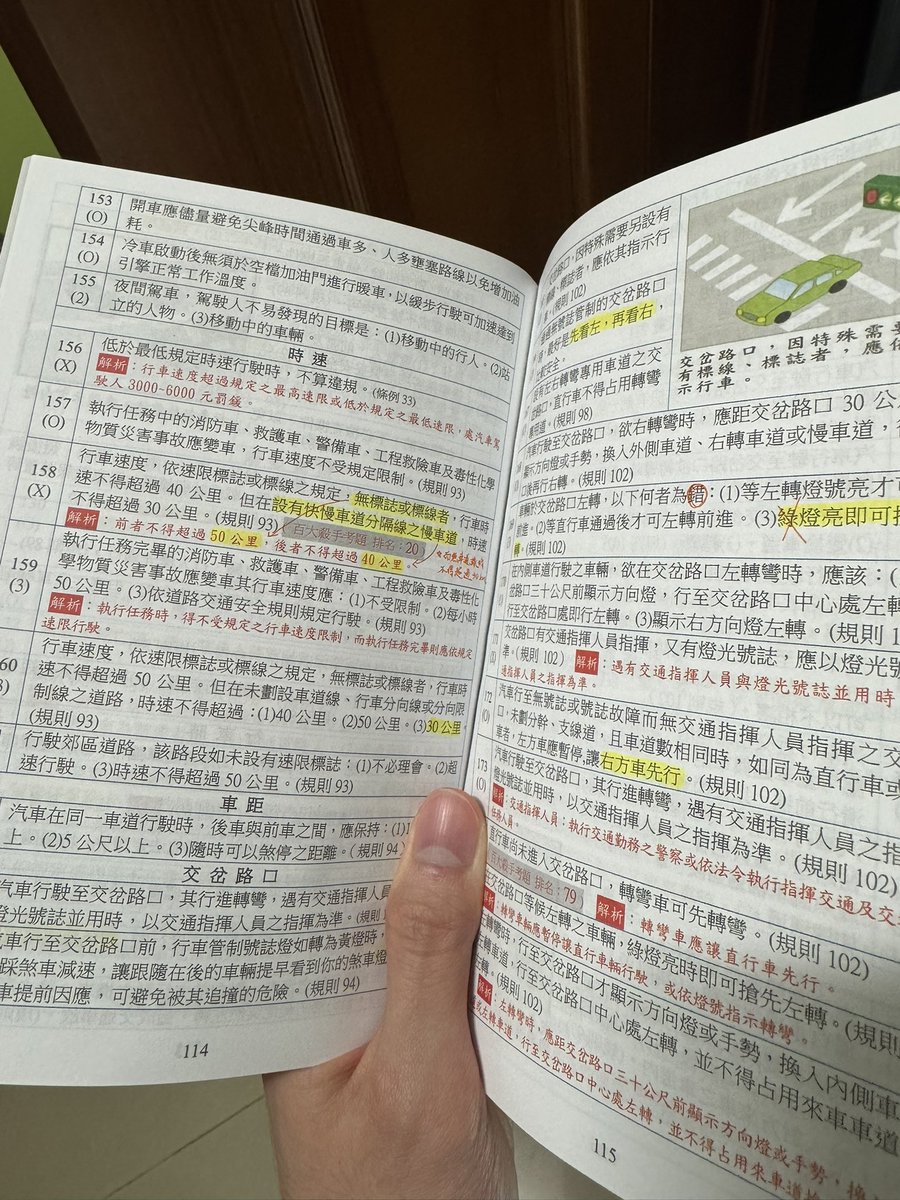 153
(O)
開車應儘量避免尖峰時間通過車多、人多壅塞路線以免增加油
耗。
154
(O)
冷車啟動後無須於空檔加油門進行暖車，以緩步行駛可加速達到
引擎正常工作溫度。
155
(2)
夜間駕車，駕駛人不易發現的目標是：(1)移動中的行人。(2)站
立的人物。(3)移動中的車輛。
時速
156
(X)
低於最低規定時速行駛時，不算違規。(條例 33)
解析：行車速度超過規定之最高速限或低於規定之最低速限，處汽車駕
駛人 3000-6000 元罰鍰。
157
(O)
執行任務中的消防車、救護車、警備車、工程救險車及毒性化學
物質災害事故應變車，行車速度不受規定限制。(規則 93)
158
(X)
行車速度，依速限標誌或標線之規定，無標誌或標線者，行車時
速不得超過 40 公里。但在設有快慢車道分隔線之慢車道，時速
不得超過 30 公里。(規則 93) 百大殺手考題 排名：20
解析：前者不得超過 50 公里，後者不得超過 40 公里
159
(3)
執行任務完畢的消防車、救護車、警備車、工程救險車及毒性化
學物質災害事故應變車其行車速度應：(1)不受限制。(2)每小時
50 公里。(3)依道路交通安全規則規定行駛。(規則 93)
解析：執行任務時，得不受規定之行車速度限制，而執行任務完畢則應依規定
速限行駛。
60
3)
行車速度，依速限標誌或標線之規定，無標誌或標線者，行車時
速不得超過 50 公里。但在未劃設車道線、行車分向線或分向限
制線之道路，時速不得超過：(1)40 公里。(2)50 公里。(3)30 公里
(規則 93)
行駛郊區道路，該路段如未設有速限標誌：(1)不必理會。(2)超
速行駛。(3)時速不得超過 50 公里。(規則 93)
車距
汽車在同一車道行駛時，後車與前車之間，應保持：(1)
上。(2)5 公尺以上。(3)隨時可以煞停之距離。(規則 94)
交岔路口
汽車行駛至交岔路口，其行進轉彎，遇有交通指揮人員
燈光號誌並用時，以交通指揮人員之指揮為準。(規則
車行至交岔路口前，行車管制號誌燈如轉為黃燈時，
踩煞車減速，讓跟隨在後的車輛提早看到你的煞車燈
車提前因應，可避免被其追撞的危險。(規則 94)
114
路口，因特殊需要另設有
標誌者，應依其指示行
(規則 102)
無號誌管制的交岔路口
最好是先看左，再看右，
安全。
左右轉彎專用車道之交
路口，直行車不得占用轉彎
(規則 98)
交岔路口，因特殊需要
有標線、標誌者，應依
示行車。
行至交岔路口，欲右轉彎時，應距交岔路口 30 公
顯示方向燈或手勢，換入外側車道、右轉車道或慢車道，
口後再行右轉。(規則 102)
車輛於交岔路口左轉，以下何者為錯：(1)等左轉燈號亮才可
前進。(2)等直行車通過後才可左轉前進。(3)綠燈亮即可
轉。(規則 102)
在內側車道行駛之車輛，欲在交岔路口左轉彎時，應該：(
路口三十公尺前顯示方向燈，行至交岔路口中心處左轉
行至交岔路口處即行左轉。(3)顯示右方向燈左轉。(規則 1
交岔路口有交通指揮人員指揮，又有燈光號誌，應以燈光號
準。(規則 102) 解析：遇有交通指揮人員與燈光號誌並用時
通指揮人員之指揮為準。
172
(O)
汽車行至無號誌或號誌故障而無交通指揮人員指揮之交
口，未劃分幹、支線道，且車道數相同時，如同為直行車或
車者，左方車應暫停，讓右方車先行。(規則 102)
173
(O)
汽車行駛至交岔路口，其行進轉彎，遇有交通指揮人員之指
燈光號誌並用時，以交通指揮人員之指揮為準。(規則 102)
解析：交通指揮人員：執行交通勤務之警察或依法令執行指揮交通及交
任務人員。
直行車尚未進入交岔路口，轉彎車可先轉彎。(規則 102)
百大殺手考題 排名：79 解析：轉彎車應讓直行車先行。
在交岔路口等候左轉之車輛，綠燈亮時即可搶先左轉。(規則
解析：轉彎車輛應暫停讓直行車輛行駛，或依燈號指示轉彎。
轉彎時，行至交岔路口才顯示方向燈或手勢，換入內側車
左轉車道，行至交岔路口中心處左轉，並不得占用來車車道
(規則 102)
解析：左轉彎時，應距交岔路口三十公尺前顯示方向燈或手勢，換
或左轉車道，行至交岔路口中心處左轉，並不得占用來車道
115